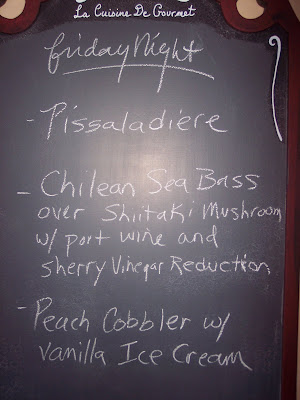 La Cuisine De Gourmet
Friday Night
- Pissaladiere
- Chilean Sea Bass
over Shiitaki Mushroom
w/ port wine and
sherry Vinegar Reduction
- Peach Cobbler w/
Vanilla Ice Cream